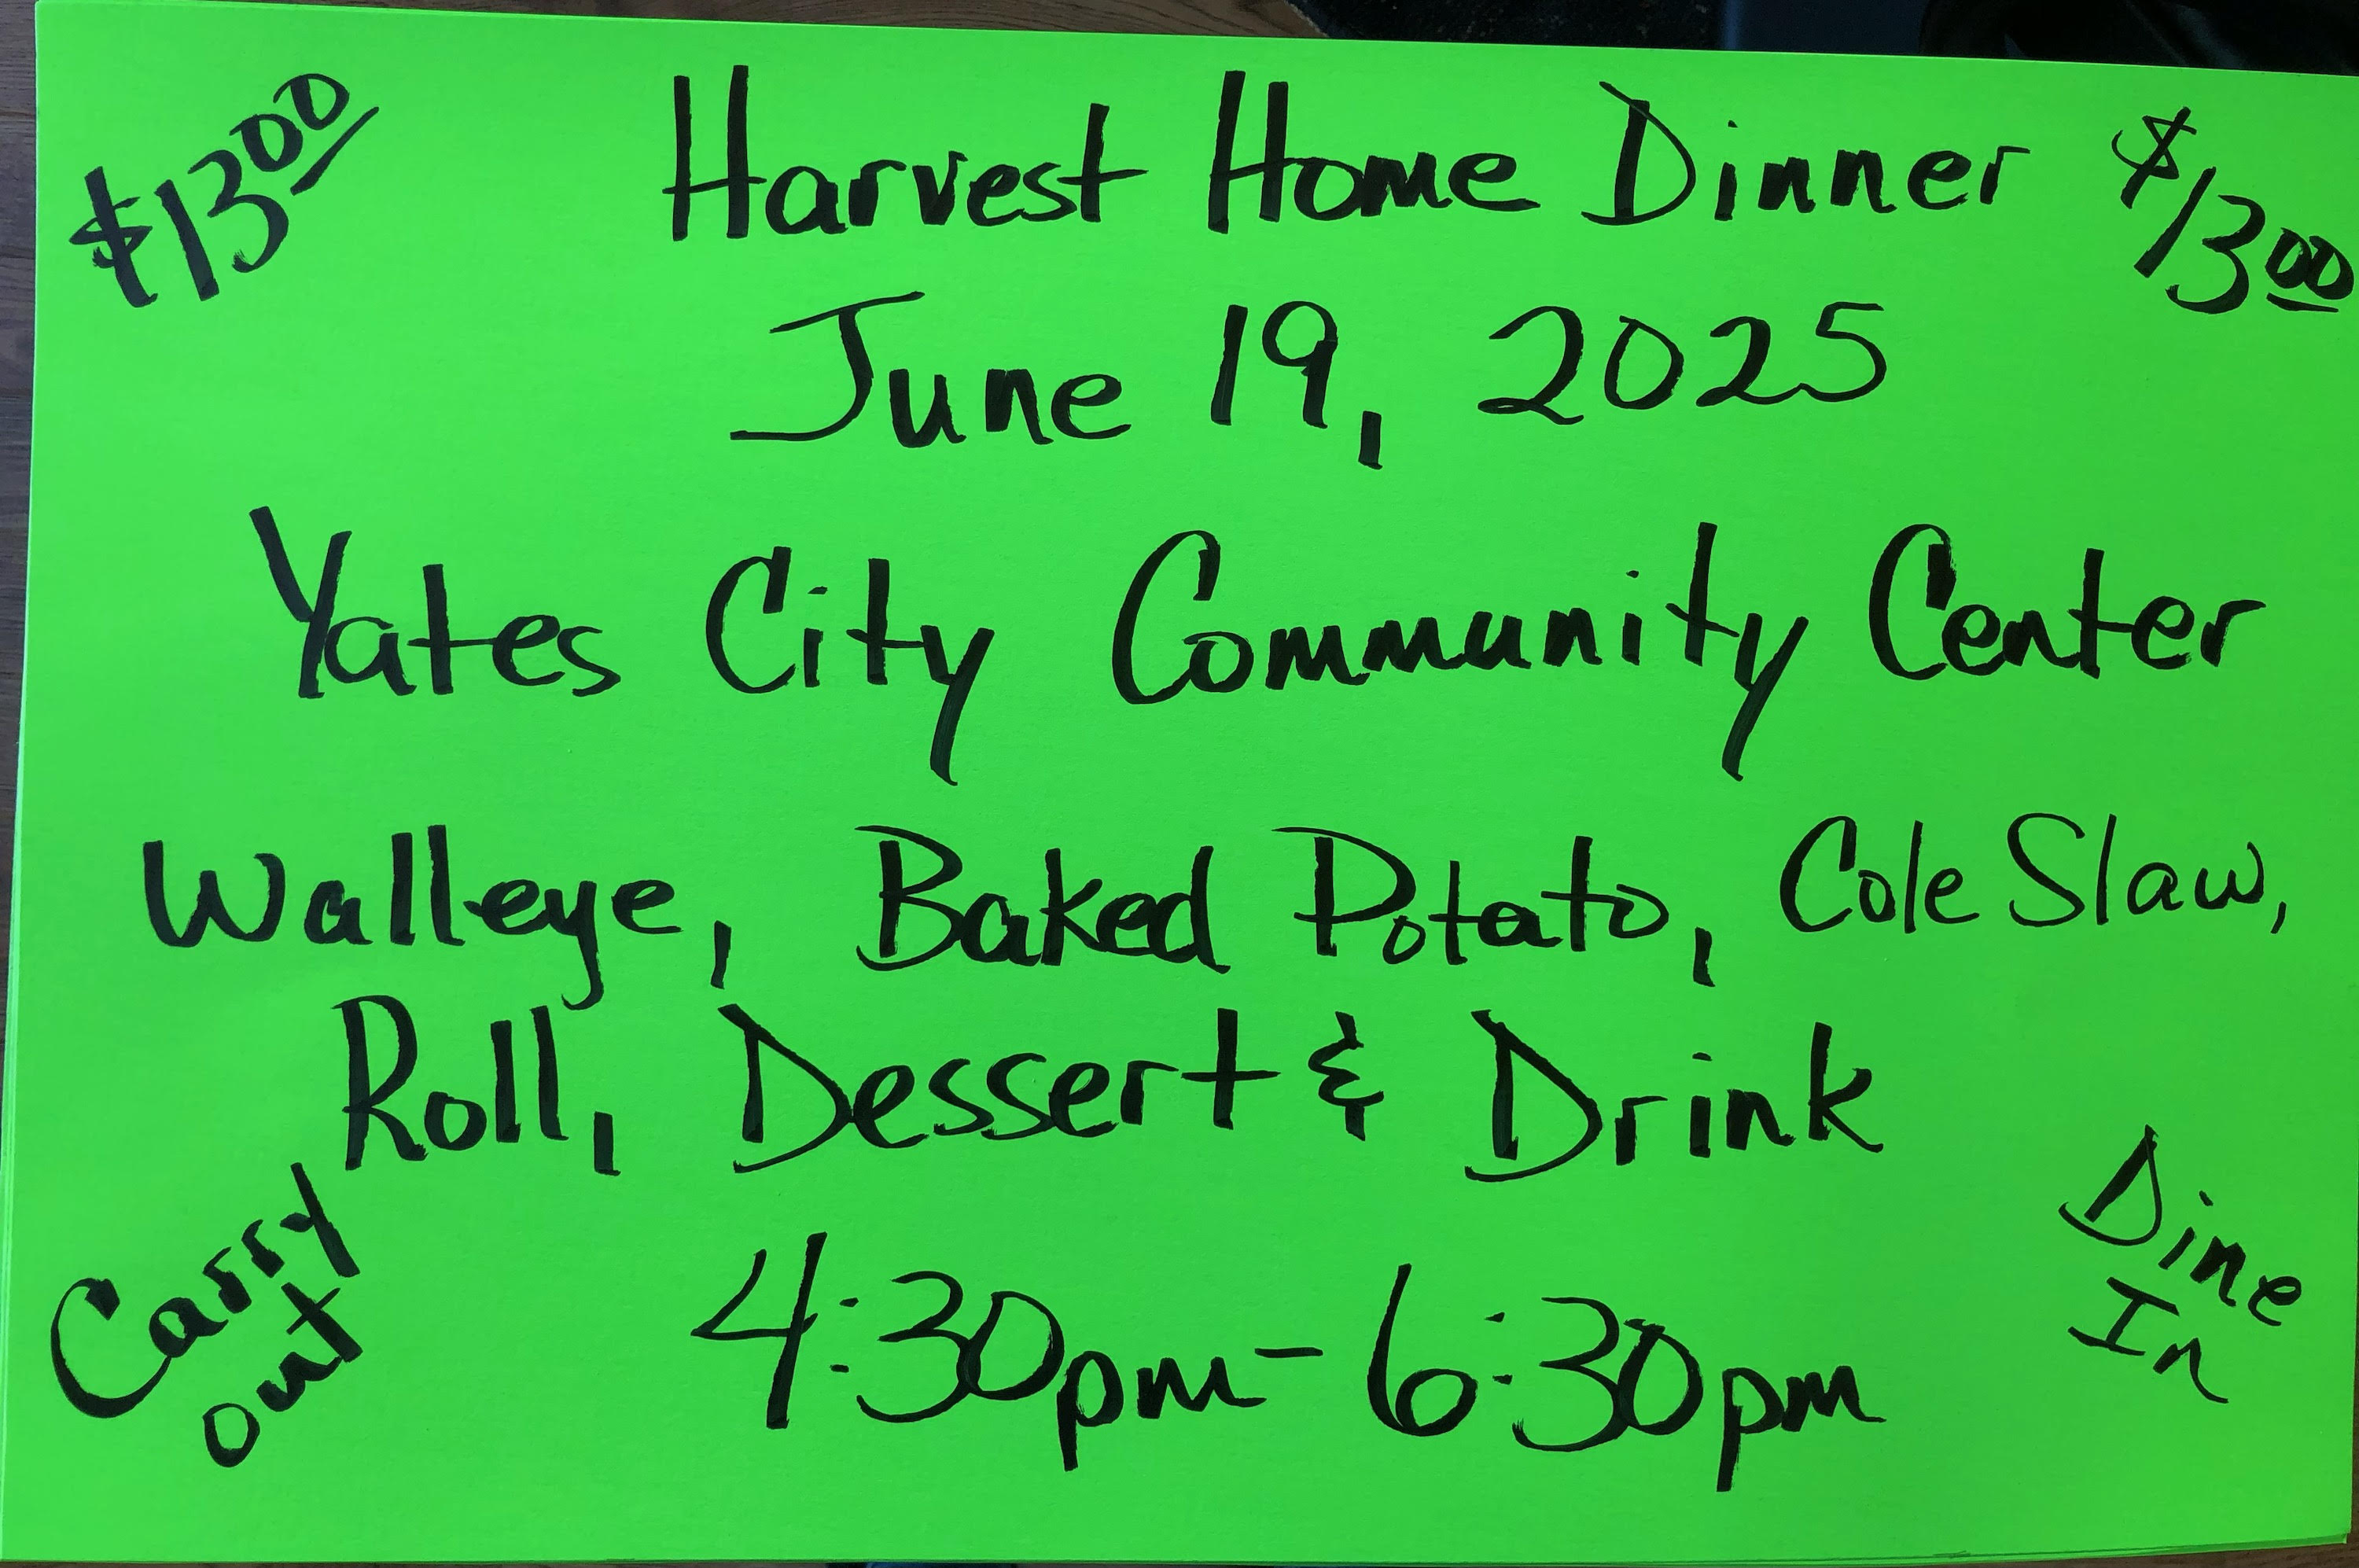 $13.00
Harvest Home Dinner
$13.00
June 19, 2025
Yates City Community Center
Walleye, Baked Potato, Cole Slaw,
Roll, Dessert & Drink
Carry
out
4:30pm - 6:30pm
Dine
In